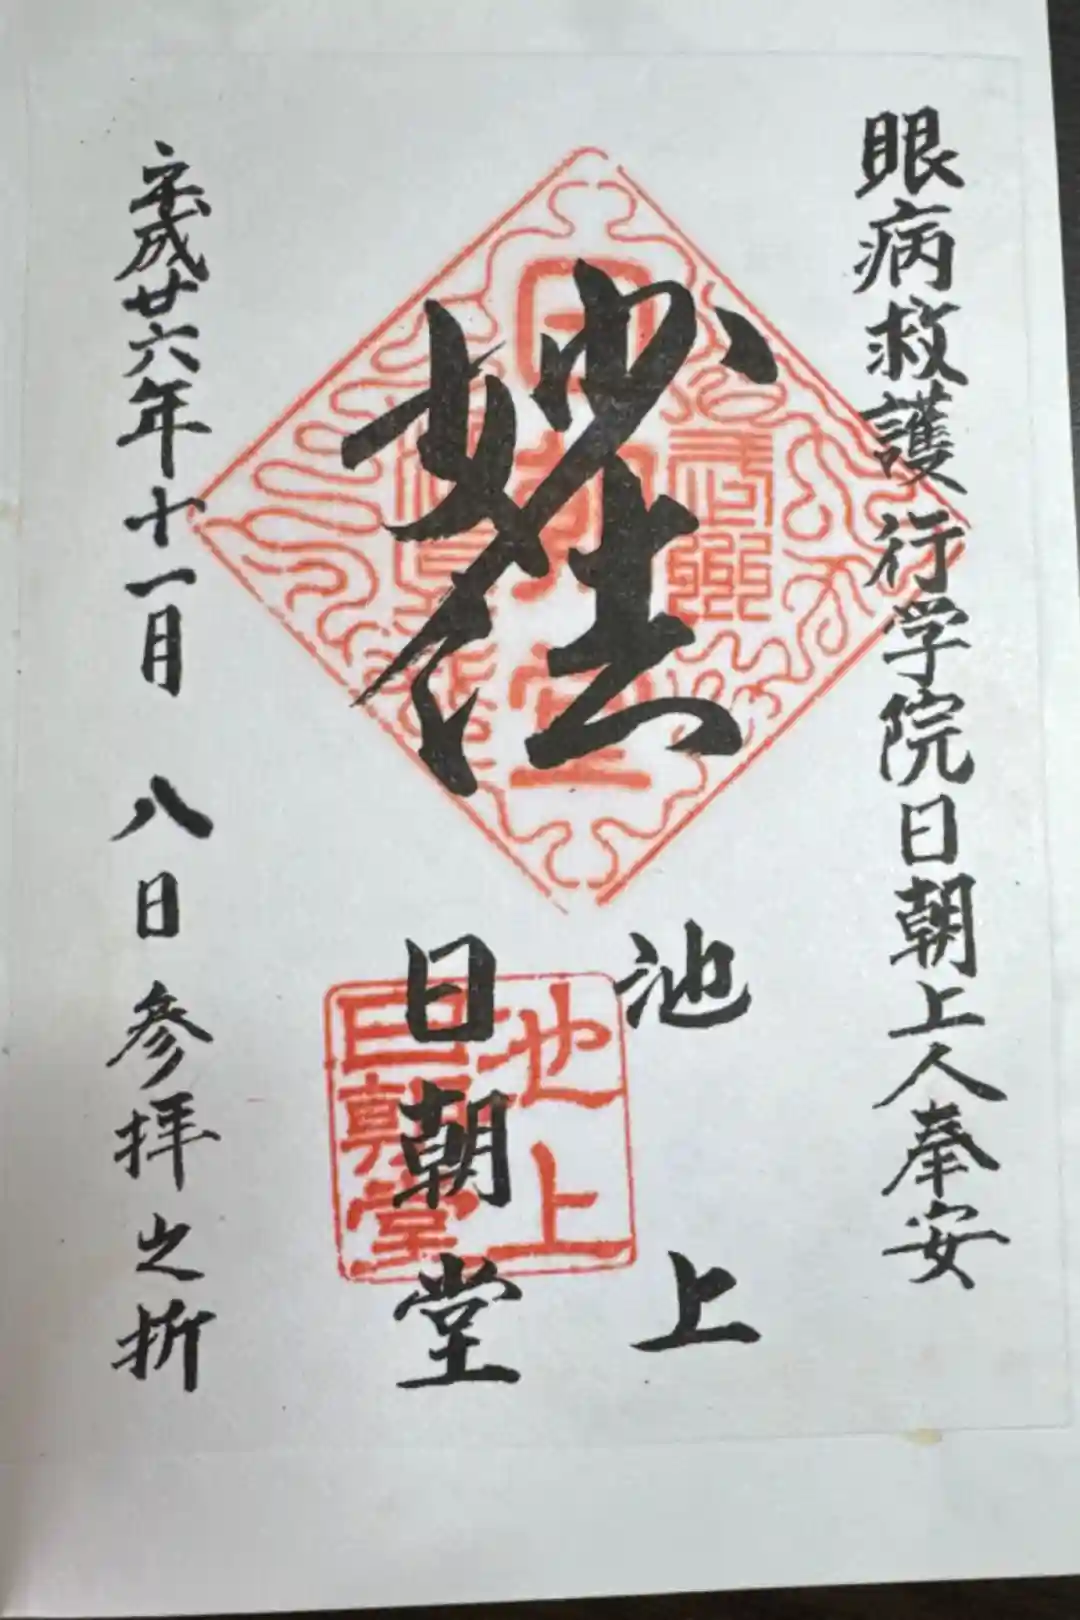 眼病救護 行学院日朝上人奉安
妙法
池上
日朝堂
池上
日朝堂
平成廿六年十一月 八日 参拝之折